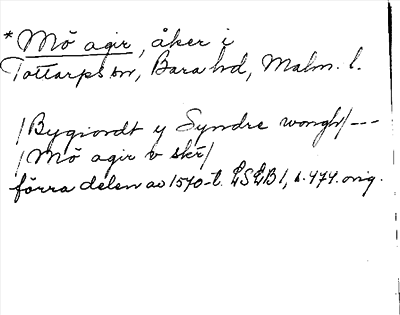 *Mö agir, åker i
Tottarps sn, Bara hd, Malm. l.
/Bygiordt y Syndre wongh/---
/Mö agir v skr/
förra delen av 1570-t. LSLB1, s. 474. orig.